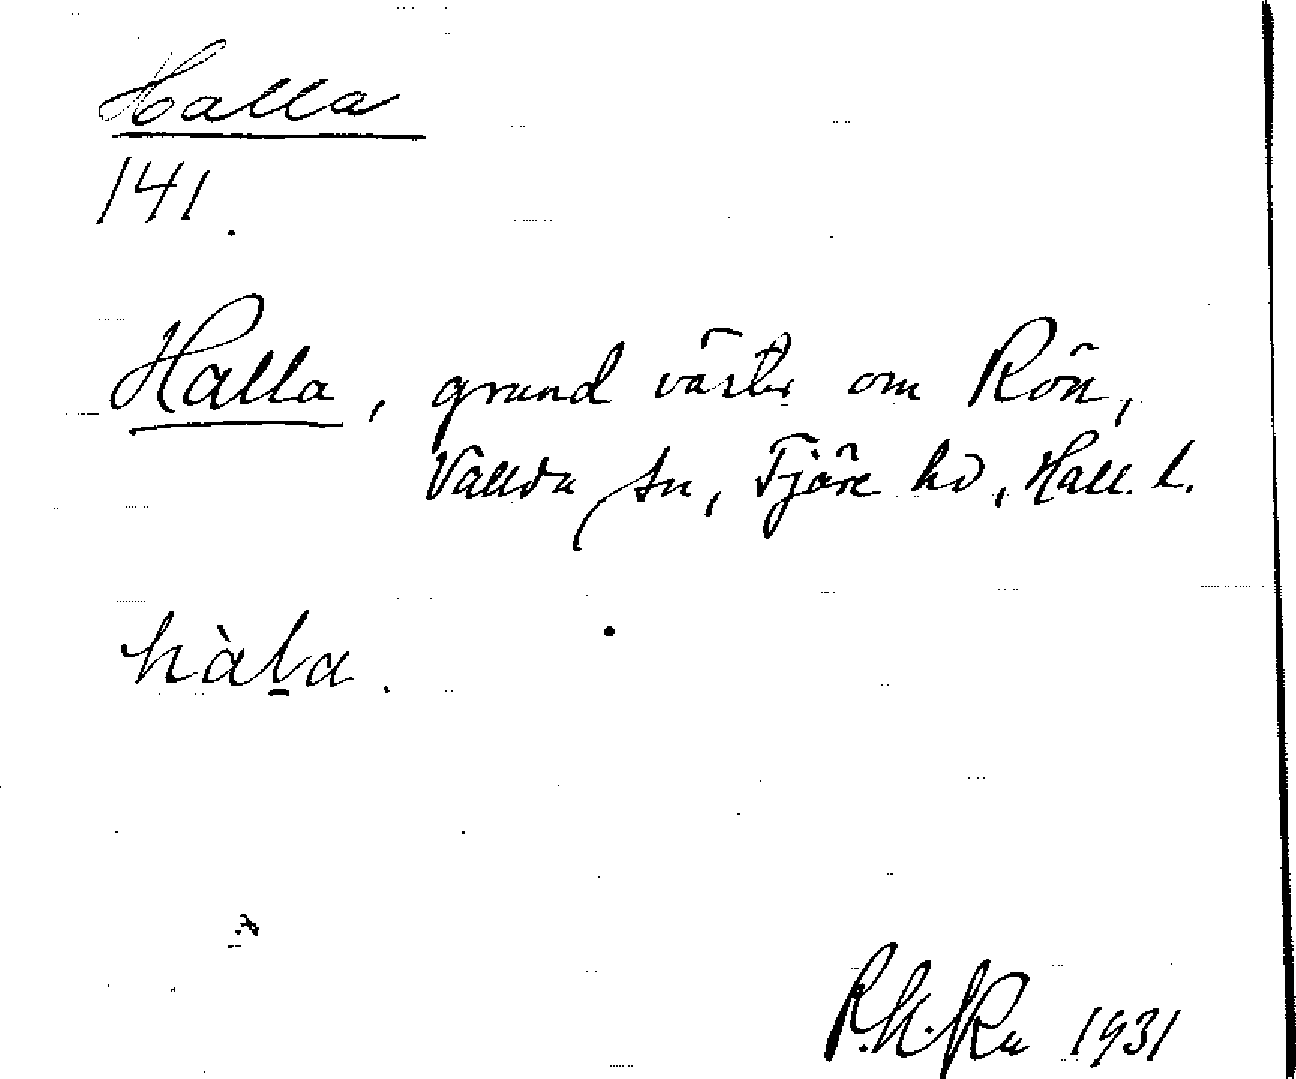 Halla
141.
Halla, grund väster om Rön,
Vallda sn, Fjäre hd, Hall. l.
hàl̠a.
1931